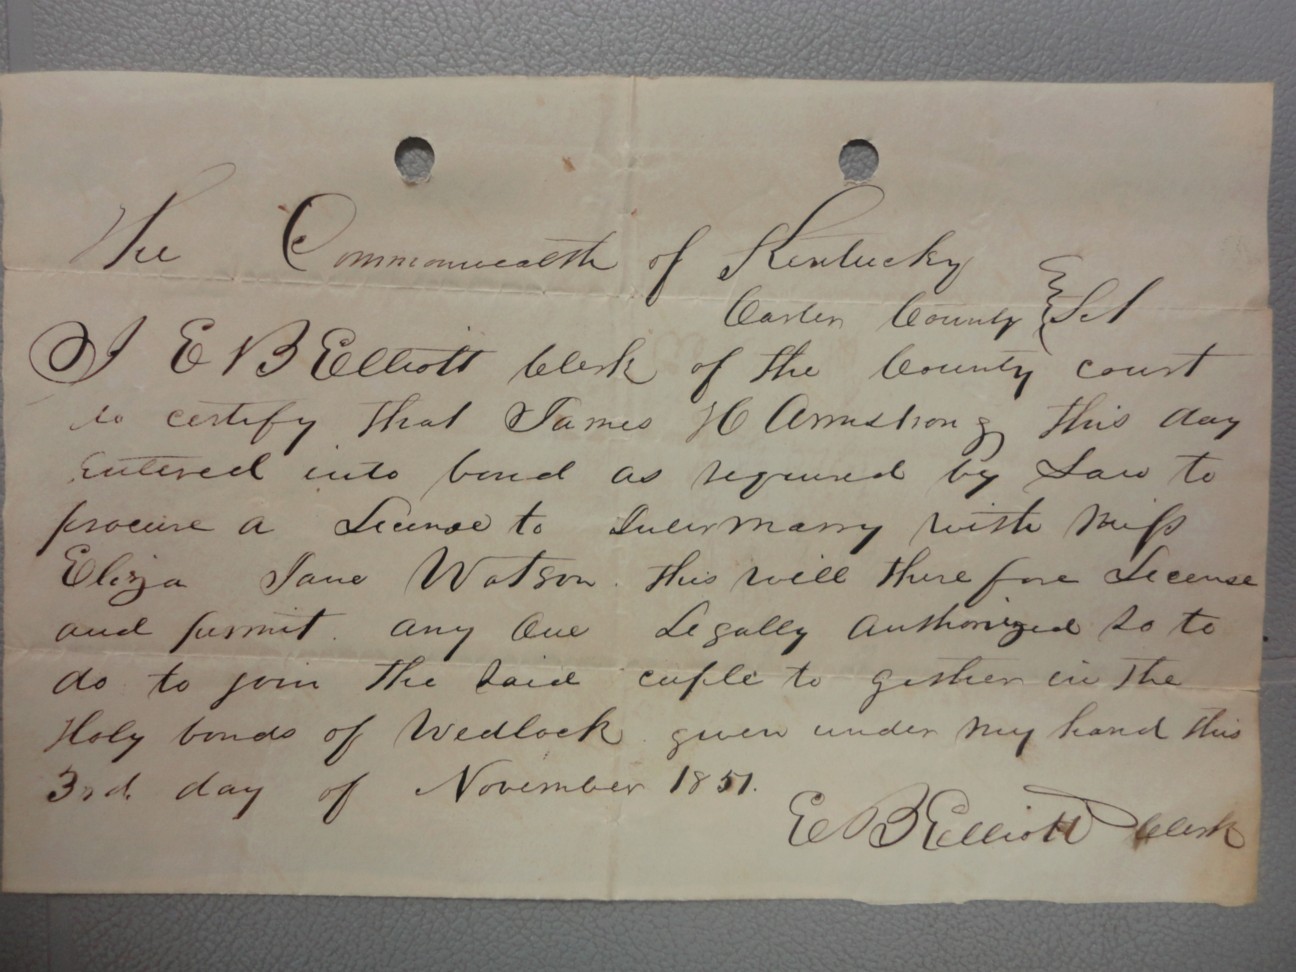 The Commonwealth of Kentucky
Carter County } Sct
I E B Elliott Clerk of the County court
do certify that James H Armstrong this day
Entered into bond as required by Law to
procure a License to Intermarry with Miss
Eliza Jane Watson. this will there fore License
and permit any One Legally Authorized so to
do to join the said cuple to gether in the
Holy bonds of Wedlock given under my hand this
3rd day of November 1851.
E B Elliott Clerk